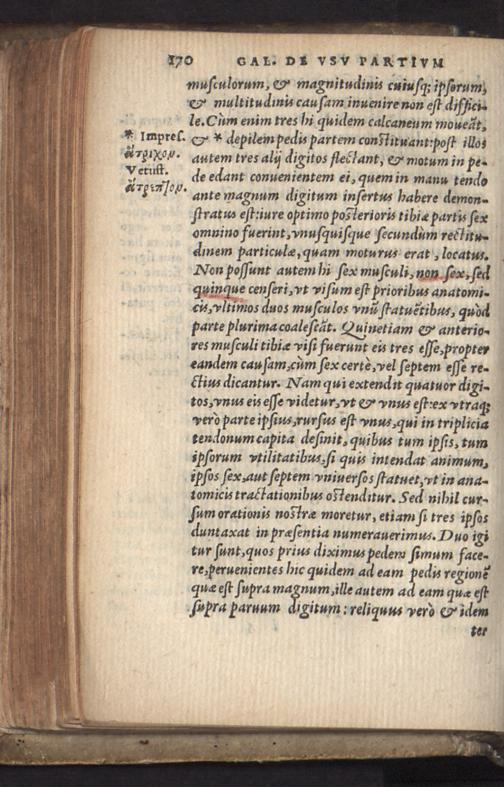 170 GAL. DE VSV PARTIVM
musculorum, & magnitudinis cuiusq; ipsorum,
& multitudinis causam inuenire non est diffici-
le. Cùm enim tres hi quidem calcaneum moueāt,
& * depilem pedis partem constituant: post illos
autem tres alij digitos flectant, & motum in pe-
de edant conuenientem ei, quem in manu tendo
ante magnum digitum insertus habere demon-
stratus est: iure optimo posterioris tibiæ partis sex
omnino fuerint, vnusquisque secundùm rectitu-
dinem particulæ, quam moturus erat, locatus.
Non possunt autem hi sex musculi, non sex, sed
quinque censeri, vt visum est prioribus anatomi-
cis, vltimos duos musculos vnū statuētibus, quòd
parte plurima coalescāt. Quinetiam & anterio-
res musculi tibiæ visi fuerunt eis tres esse, propter
eandem causam, cùm sex certè, vel septem esse re-
ctius dicantur. Nam qui extendit quatuor digi-
tos, vnus eis esse videtur, vt & vnus est: ex vtraq;
verò parte ipsius, rursus est vnus, qui in triplicia
tendonum capita desinit, quibus tum ipsis, tum
ipsorum vtilitatibus, si quis intendat animum,
ipsos sex, aut septem vniuersos statuet, vt in ana-
tomicis tractationibus ostenditur. Sed nihil cur-
sum orationis nostræ moretur, etiam si tres ipsos
duntaxat in præsentia numerauerimus. Duo igi
tur sunt, quos prius diximus pedem simum face-
re, peruenientes hic quidem ad eam pedis regionē
quæ est supra magnum, ille autem ad eam quæ est
supra paruum digitum: reliquus verò & idem
ter
* Impres.
ἄτριχον.
Vetust.
ἄτρεπτον.